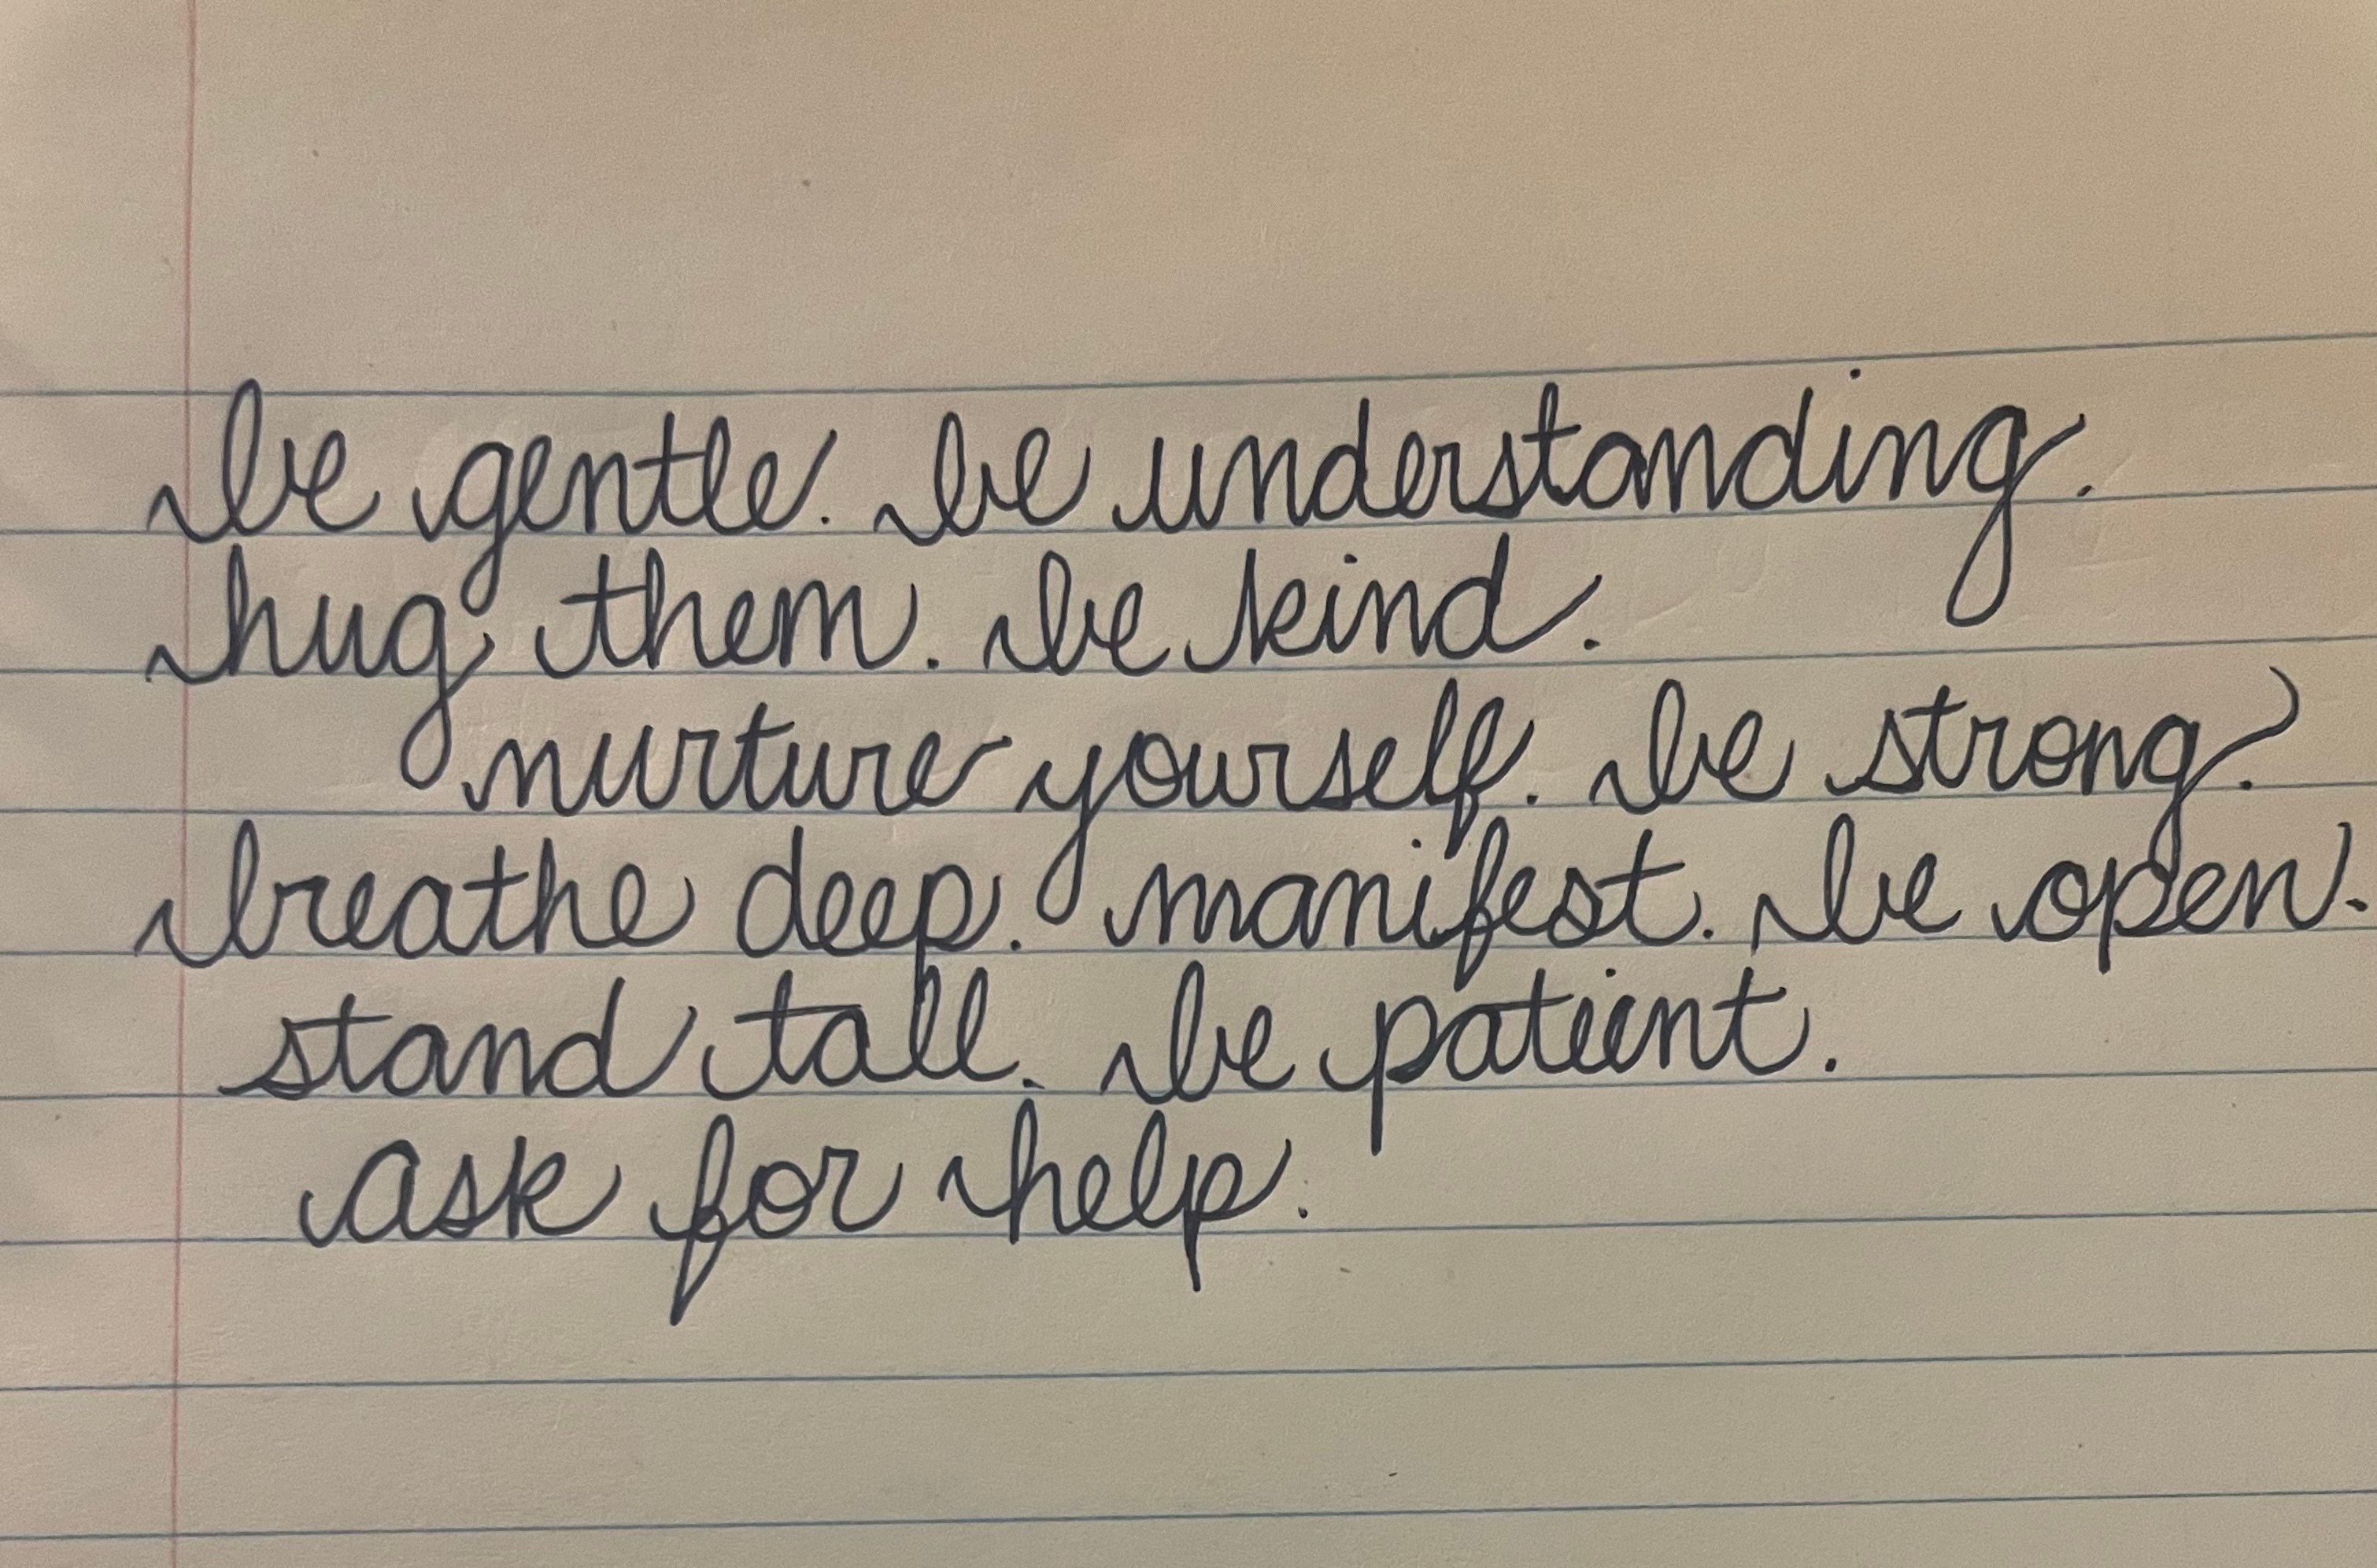 be gentle. be understanding.
hug them. be kind.
nurture yourself. be strong.
breathe deep. manifest. be open.
stand tall. be patient.
ask for help.